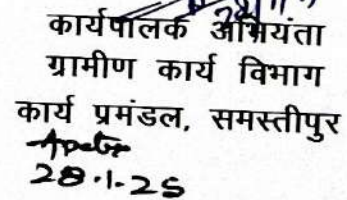 कार्यपालक अभियंता
ग्रामीण कार्य विभाग
कार्य प्रमंडल, समस्तीपुर
28.1.25